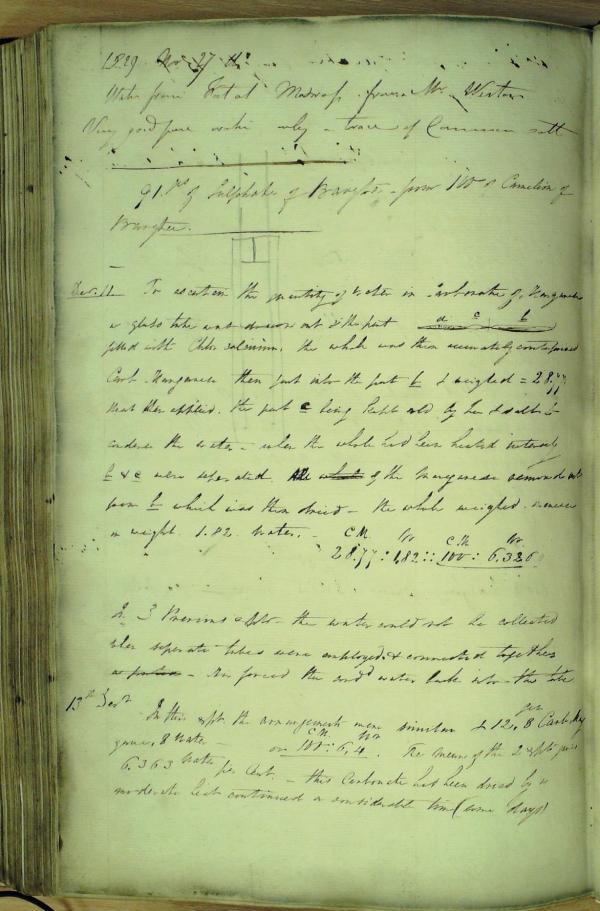 1829 Nov 27th
Water from Fort at Madras from Mr.
Very good pure water only a trace of Common salt
91. of Sulphate of from 100 of
Baryta.
Dec. 11 To ascertain the quantity of Water in Carbonate of Manganese
a glass tube was drawn out & the part a c b
filled with Chlor calcium. the whole was then accurately counterpoised
Carb. Manganese then put into the part b & weighed = 28.77
Heat then applied. the part c being kept cold by Ice & salt to
condense the water - when the whole had been heated
b & c were separated. All of the Manganese removed
from b which was then dried - the whole weighed.
in weight 1.82 water. - C.M. W C.M. W
28.77 : 1.82 :: 100 : 6.326
In 3 Previous expts the water could not be collected
when separate tubes were employed & connected together
forced the cond water back into the tube
13th Decr In this expt. the arrangements were similar & 12, 8 Carb. Man
gave, 8 Water - or C.M. 100 : Wr 6,4. The mean of the 2 expts gives
6.363 Water per Cent. - this Carbonate had been dried by a
moderate heat continued a considerable time (some days)